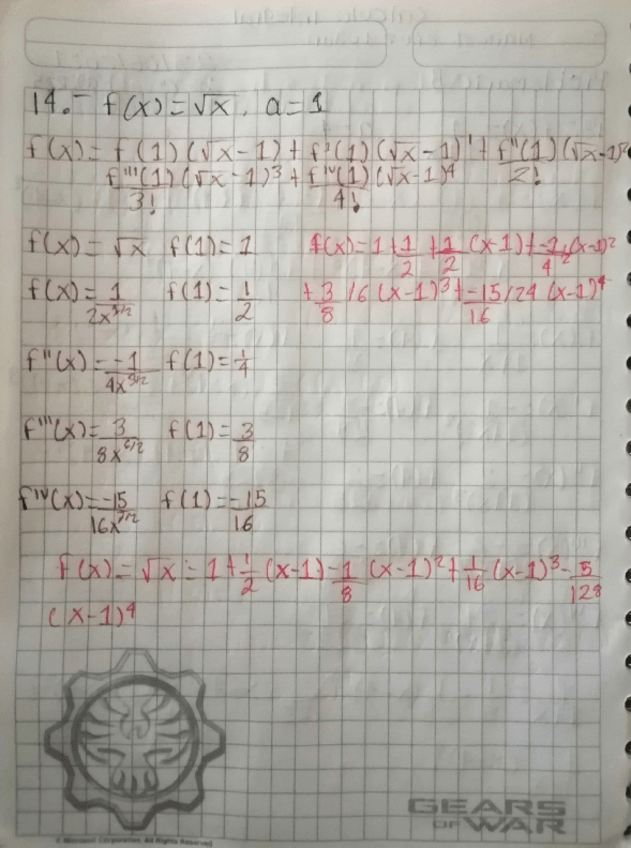 14.- f(x)=√x, a=1
f(x)= f(1)(√x-1)+ f'(1)(√x-1)'+ f''(1)(√x-1)²/2!
f'''(1)(√x-1)3/3! + f''''(1)(√x-1)4/4!
f(x)=√x f(1)=1 f(x)=1+1/2+1/2(x-1)+-1/4/2(x-1)2
f(x)=1/2x^3/2 f(1)=1/2 +3/8/6(x-1)3+-15/16/24(x-1)4
f''(x)=-1/4x^3/2 f(1)=1/4
f'''(x)=3/8x^5/2 f(1)=3/8
f''''(x)=-15/16x^7/2 f(1)=-15/16
f(x)=√x=1+1/2(x-1)-1/8(x-1)2+1/16(x-1)3-5/128
(x-1)4
GEARS
OF WAR
© Microsoft Corporation. All Rights Reserved